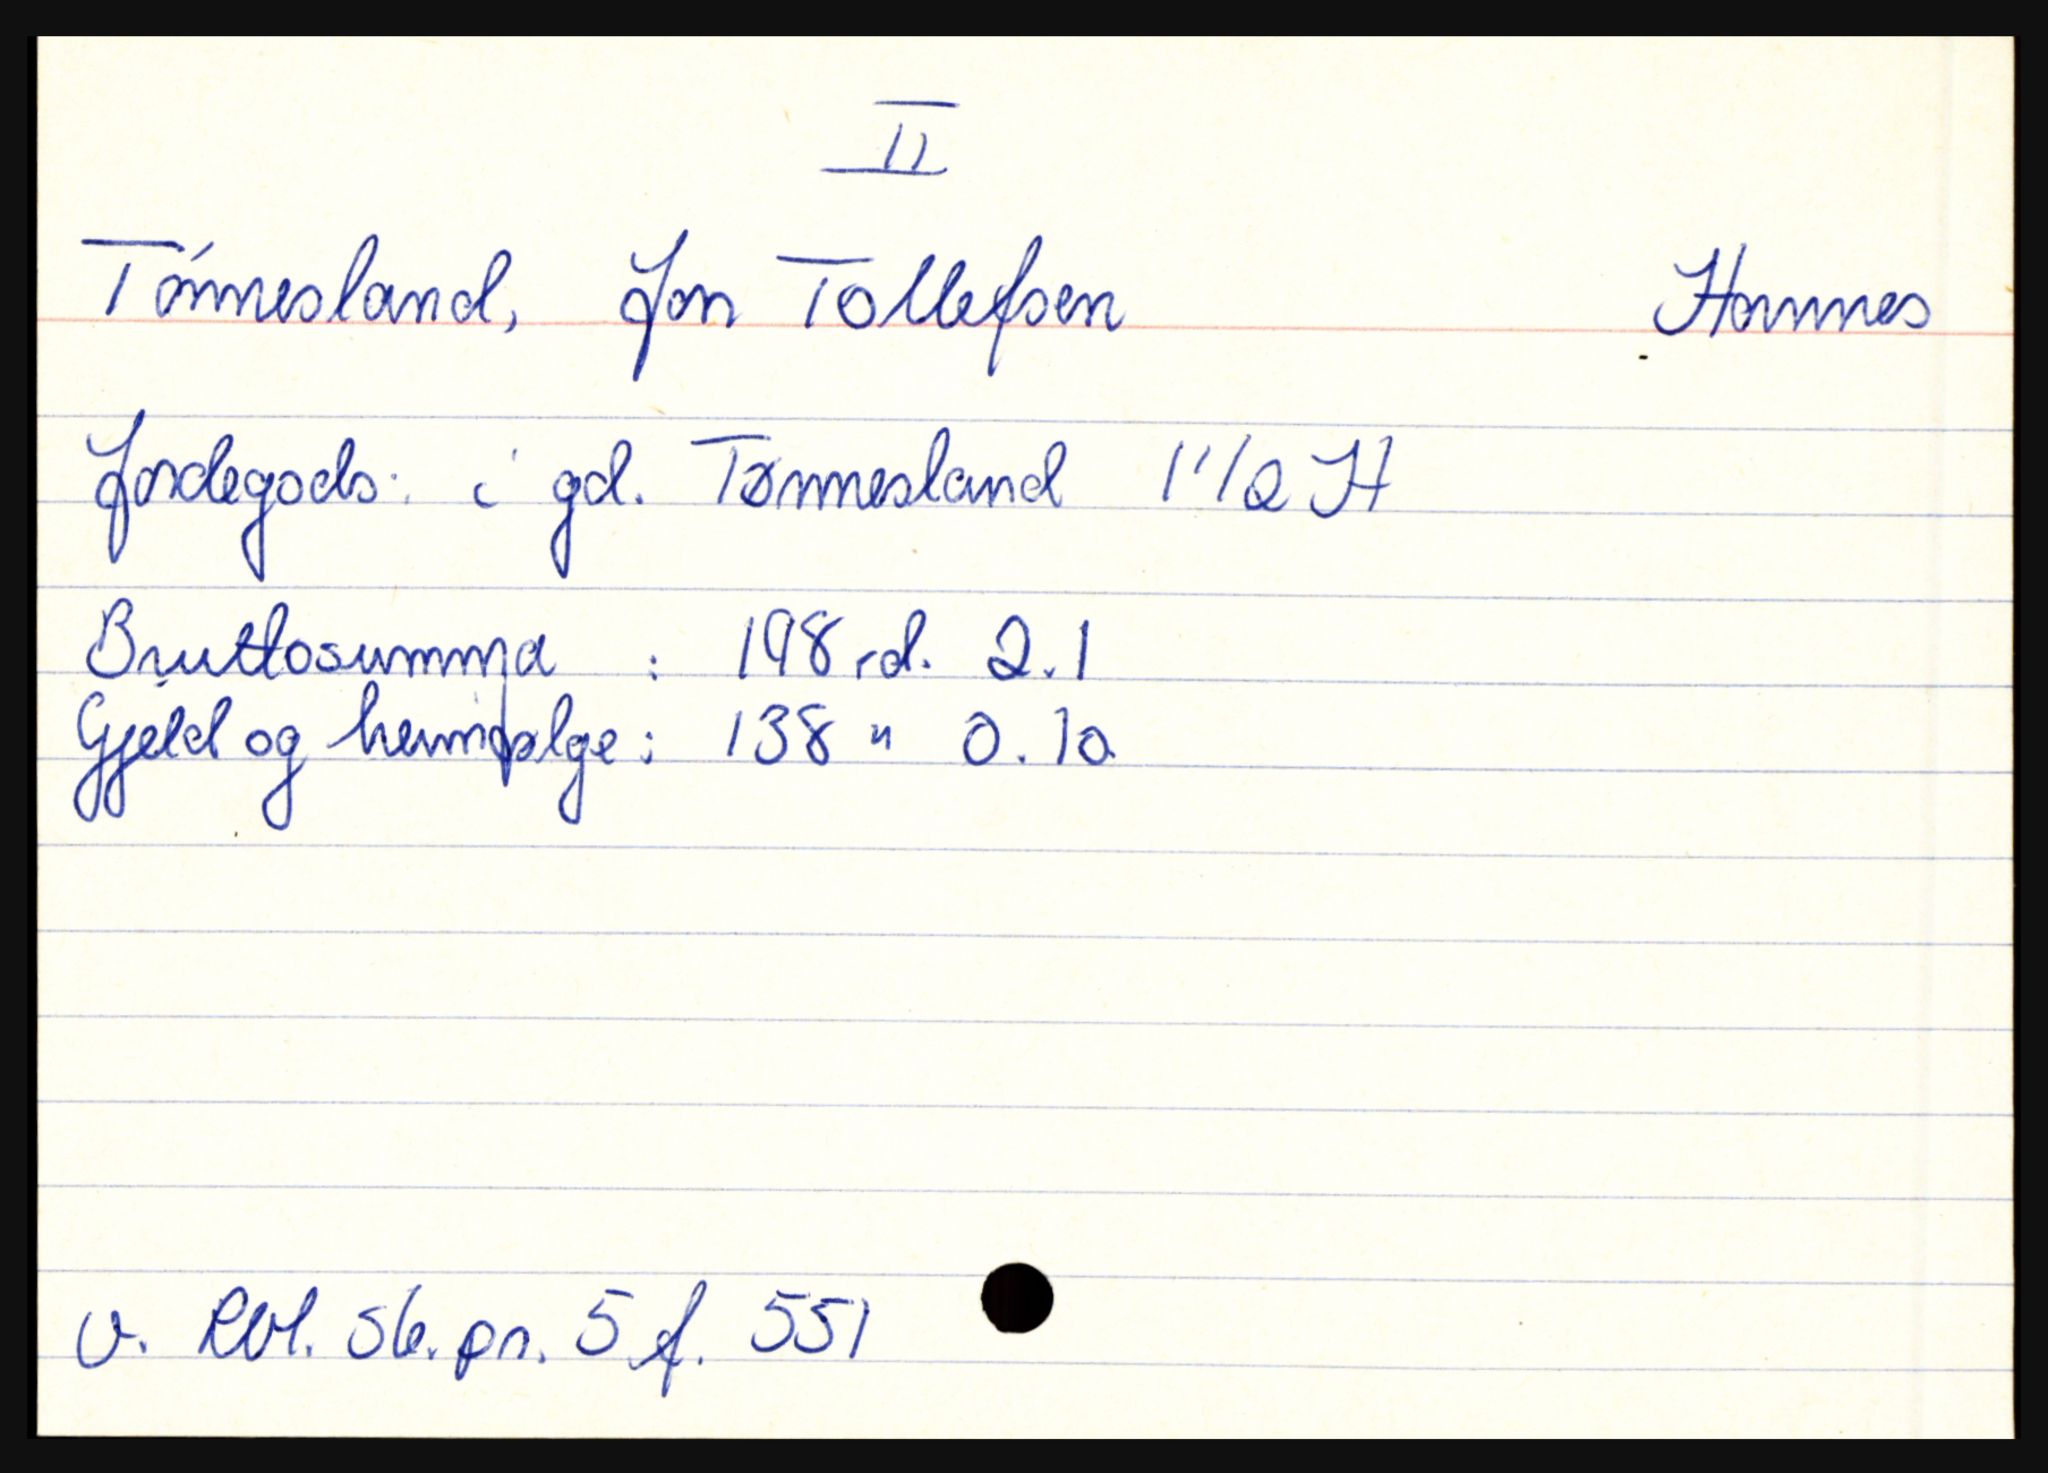 II
Tónnesland, Jon Tollefsen Honnes
Jordegods: i gd. Tønnesland 1 1/2 H
Bruttosumma : 198 rd. 2.1
Gjeld og heimfølge: 138 " 0.10
v. Rbl. sk.pr. 5 f. 551